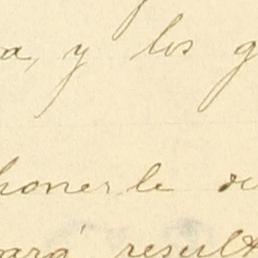 a, y los g
honerle su
ará result